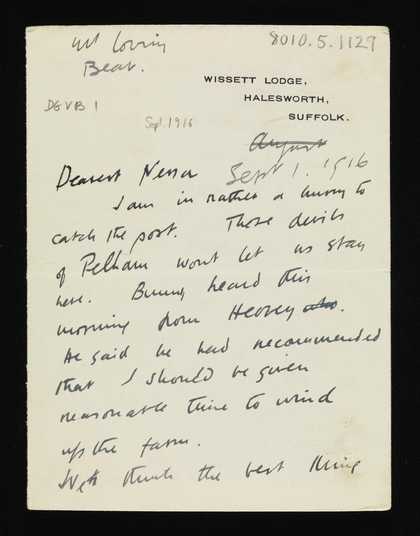 yr loving
Bear.
8010.5.1129
WISSETT LODGE,
HALESWORTH,
SUFFOLK.
DGVB 1
Sept. 1916
August
Dearest Nessa Sept 1. 1916
I am in rather a hurry to
catch the post. Those devils
of Pelham wont let us stay
here. Bunny heard this
morning from Hervey
He said he had recommended
that I should be given
reasonable time to wind
up the farm.
We think the best thing